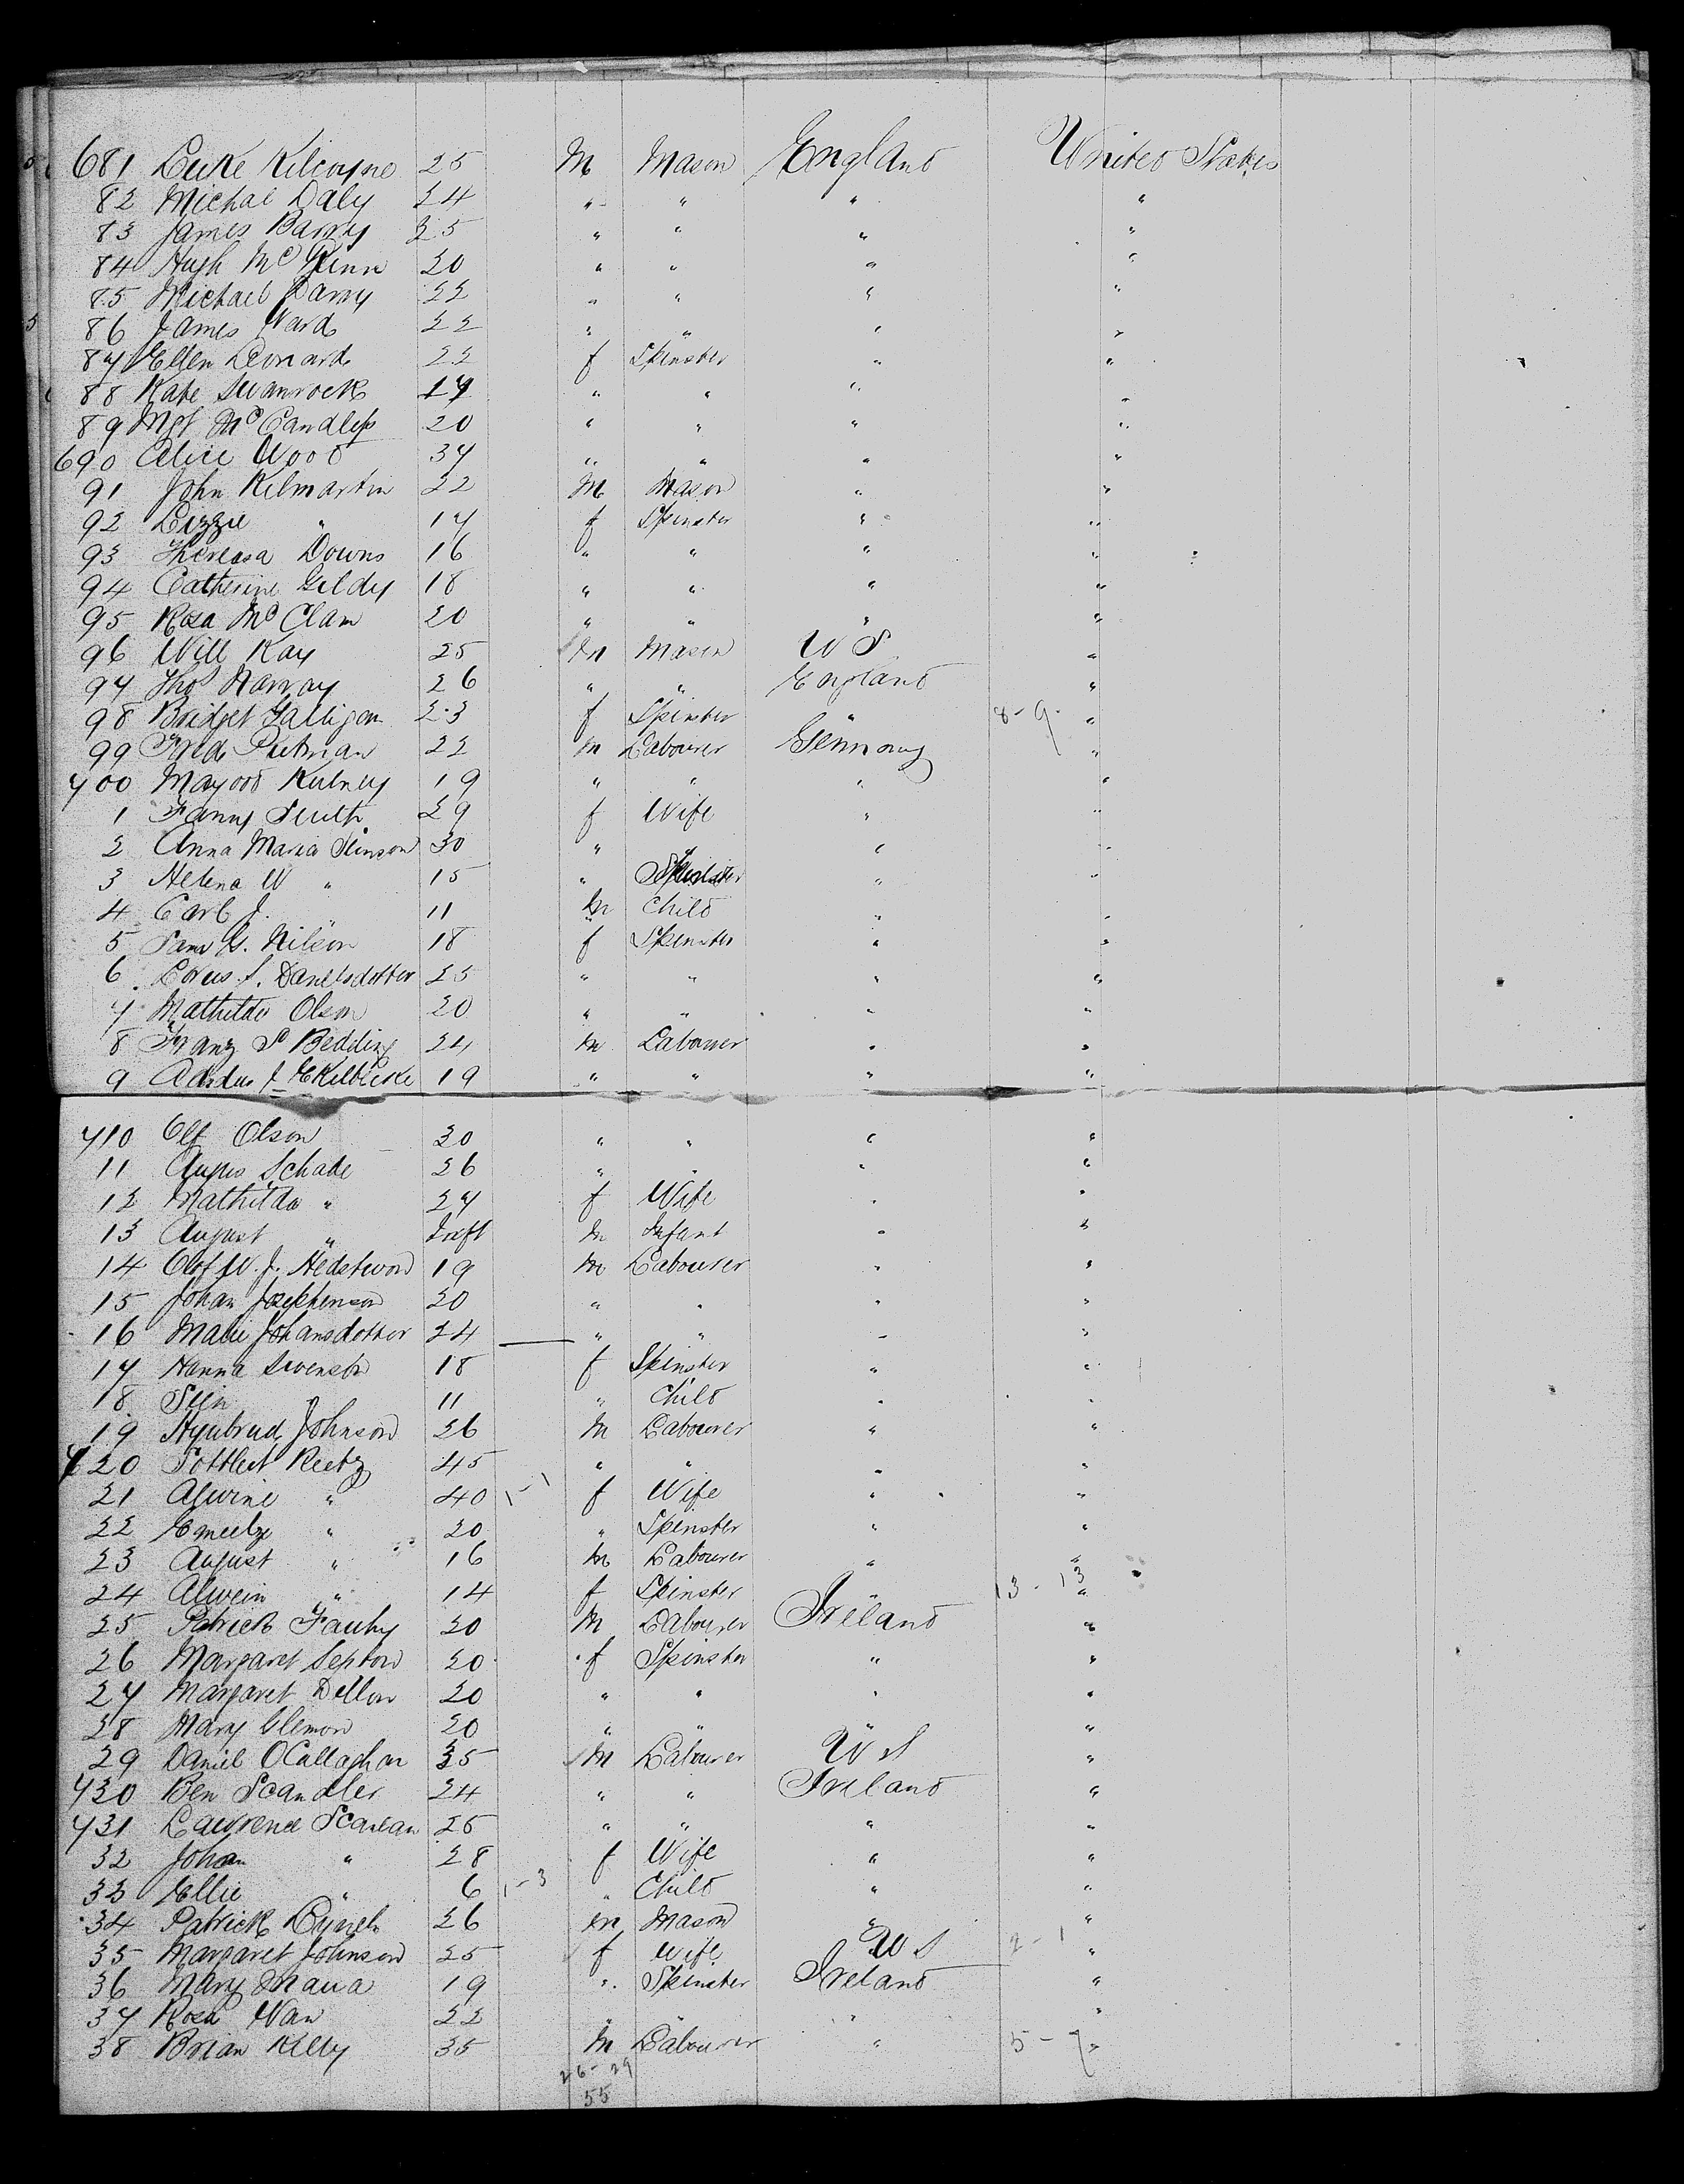 681 Luke Kilcoyne 25 M Mason England United States
82 Michal Daly 24 " " " "
83 James Barry 25 " " " "
84 Hugh McGinn 20 " " " "
85 Michael Darvy 22 " " " "
86 James Ward 22 " " " "
87 Ellen Leonard 22 f Spinster " "
88 Kate Swanrock 17 " " " "
89 Mgt McCandless 20 " " " "
690 Alice Wood 37 " " " "
91 John Kilmartin 22 M Mason " "
92 Lizzie " 17 f Spinster " "
93 Thereasa Downs 16 " " " "
94 Catherine Gildy 18 " " " "
95 Rosa McClam 20 " " " "
96 Will Kay 25 m Mason U S "
97 Thos Harvay 26 " " England "
98 Bridget Galligan 23 f Spinster " 8-9 "
99 Fred Putman 22 m Labourer Germany "
700 Mayood 19 " " " "
1 Fanny 29 f Wife " "
2 Anna Maria Stinson 30 " " "
3 Helena W " 15 " Spinster " "
4 Carl J. " 11 m Child " "
5 G. Nilson 18 f Spinster " "
6 S. Danielsdotter 25 " " " "
7 Mathilda Olson 20 " " " "
8 Franz Bedding 24 m Labourer " "
9 J 19 " " " "
710 Olf Olson 20 " " " "
11 Augus Schade 26 " " " "
12 Mathilda " 27 f Wife " "
13 August " Inft m Infant " "
14 Olof W. J. Hedstwon 19 m Labourer " "
15 Johan Josephenson 20 " " " "
16 Malie Johansdotter 24 " " " "
17 Hanna Swenston 18 f Spinster " "
18 11 " Child " "
19 Johnson 26 M Labourer " "
720 Gottlieb Reetz 45 " " " "
21 Alwine " 40 1-1 f Wife " "
22 " 20 " Spinster " "
23 August " 16 m Labourer " "
24 Alwein " 14 f Spinster " 13-13 "
25 Patrick Fauhy 20 M Labourer Ireland "
26 Margaret Septon 20 f Spinster " "
27 Margaret Dillon 20 " " " "
28 Mary Clemon 20 " " " "
29 Daniel OCallaghan 35 M Labourer U S "
730 Ben Scandler 24 " " Ireland "
731 Lawrence Scanlan 25 " " " "
32 Johan " 28 f Wife " "
33 Ellie " 6 1-3 " Child " "
34 Patrick Lynch 26 m Mason " "
35 Margaret Johnson 25 f Wife U S 2-1 "
36 Mary Maria 19 " Spinster Ireland "
37 Rosa Wan 22 " " " "
38 Brian Kelly 35 M Labourer " 5-7 "
26-29
55